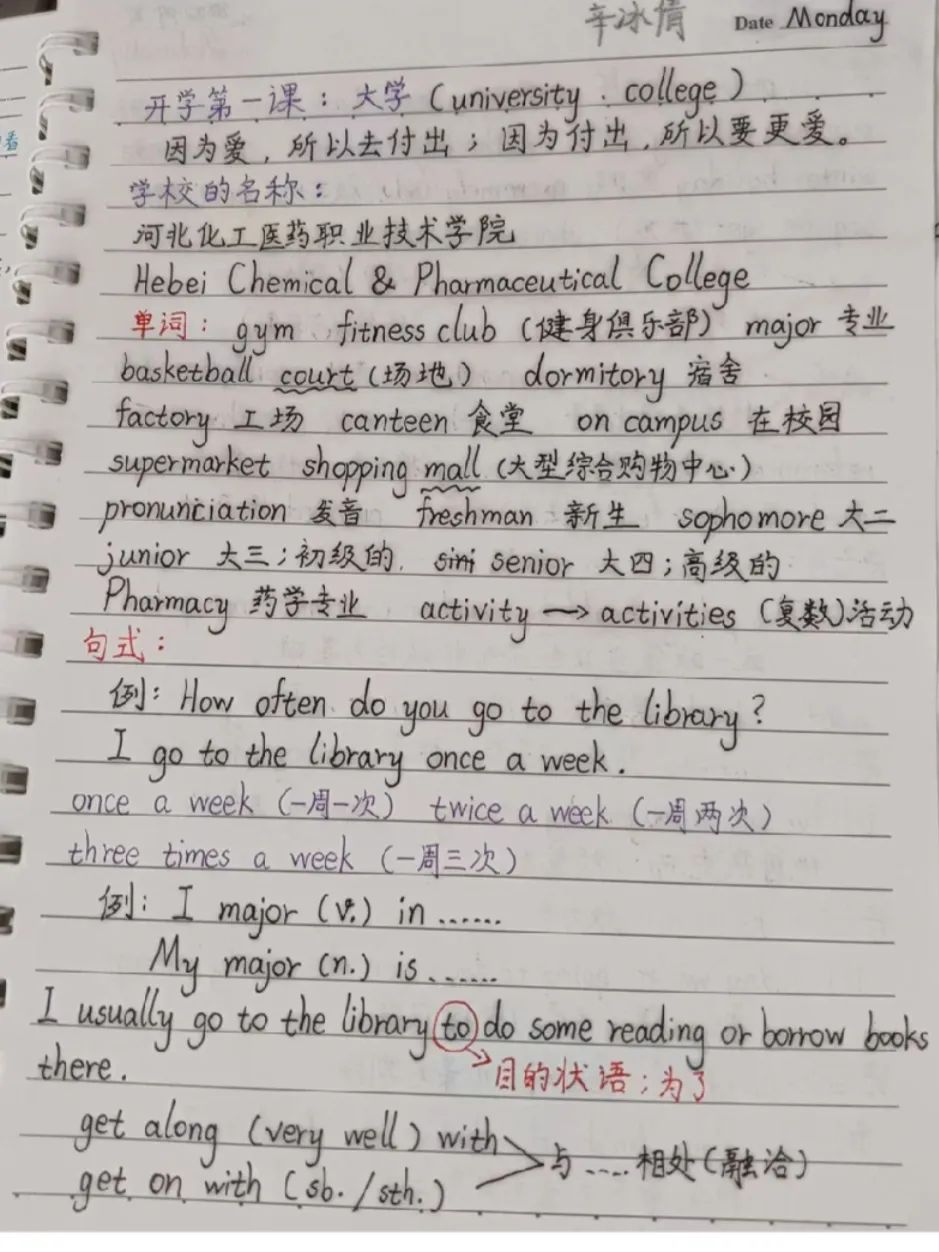 辛冰倩 Date Monday
开学第一课：大学（university . college）
因为爱，所以去付出；因为付出，所以要更爱。
学校的名称：
河北化工医药职业技术学院
Hebei Chemical & Pharmaceutical College
单词：gym fitness club（健身俱乐部） major 专业
basketball court（场地） dormitory 宿舍
factory 工场 canteen 食堂 on campus 在校园
supermarket shopping mall（大型综合购物中心）
pronunciation 发音 freshman 新生 sophomore 大二
junior 大三；初级的. senior 大四；高级的
Pharmacy 药学专业 activity → activities（复数）活动
句式：
例：How often do you go to the library?
I go to the library once a week.
once a week（一周一次） twice a week（一周两次）
three times a week（一周三次）
例：I major (v.) in ......
My major (n.) is ......
I usually go to the library to do some reading or borrow books
there. 目的状语；为了
get along (very well) with
与 .... 相处（融洽）
get on with (sb. / sth.)